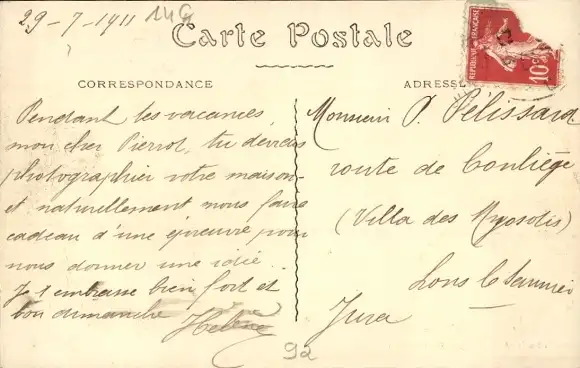 29-7-1911
14G
Carte Postale
CORRESPONDANCE
ADRESSE
RÉPUBLIQUE FRANÇAISE
10c
Pendant les vacances,
mon cher Pierrot, tu devrais
photographier votre maison
et naturellement nous faire
cadeau d'une épreuve pour
nous donner une idée
Je t'embrasse bien fort et
bon dimanche Hélène
Monsieur P. Pélissard
route de Conliège
(Villa des Myosotis)
Lons le Saunier
Jura
92